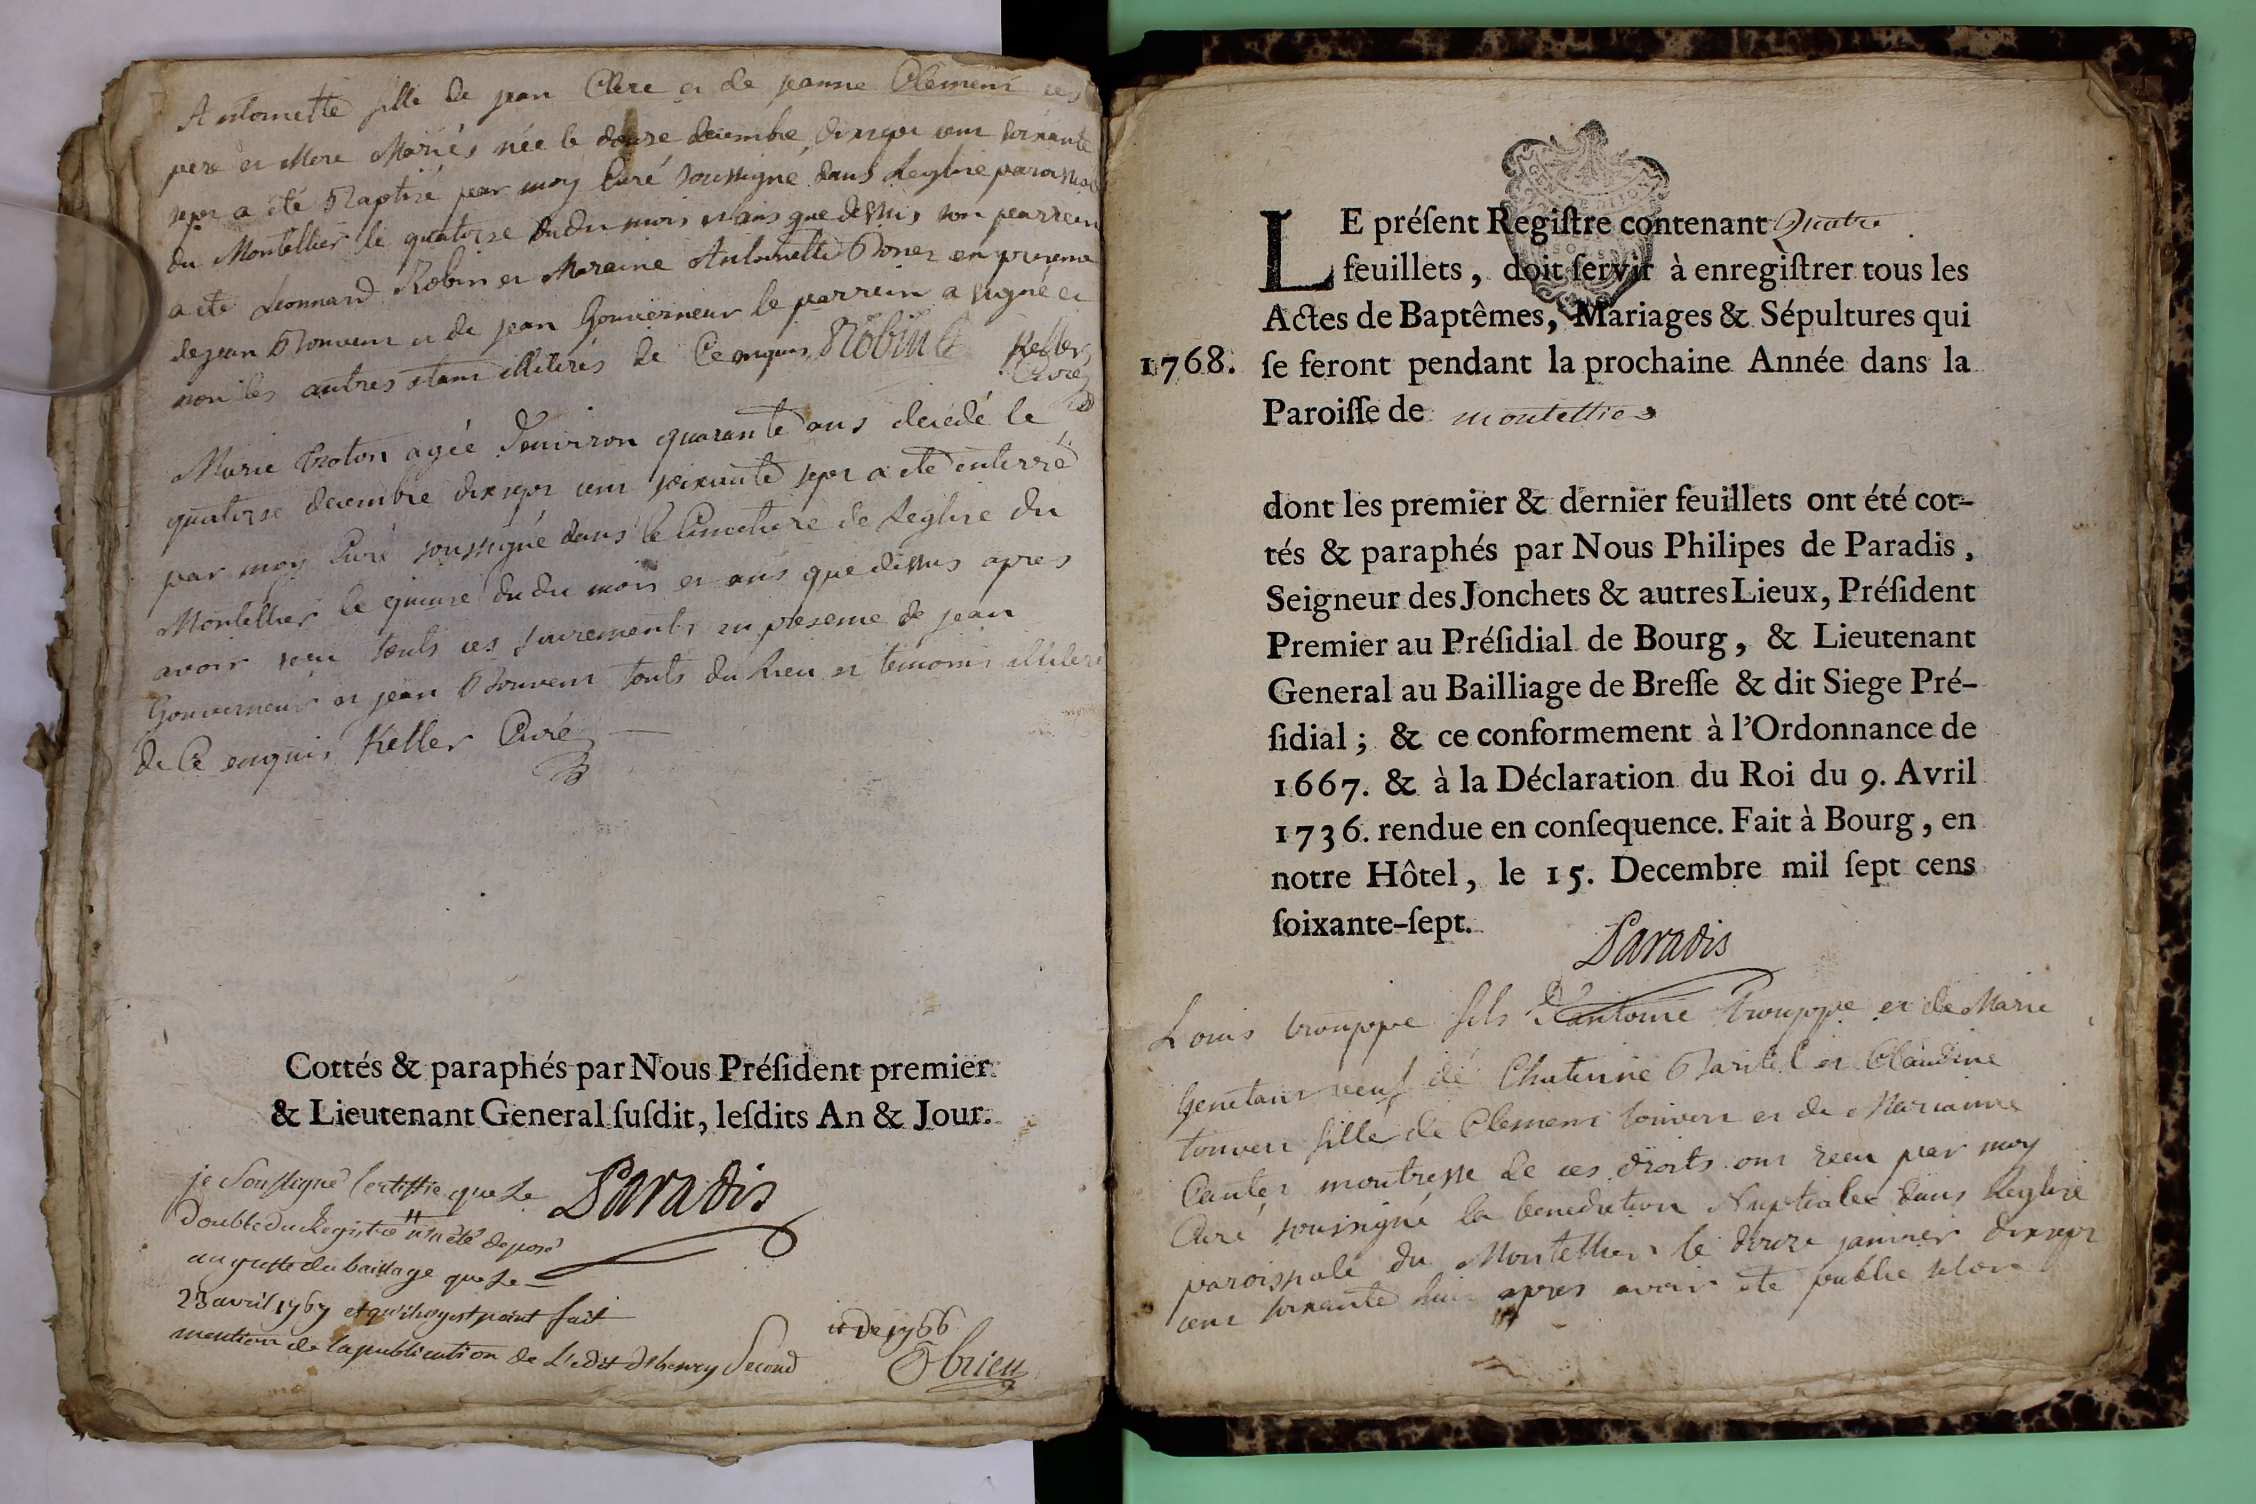 Antoinette fille de jean Clere et de jeanne Clement ces
pere et Mere Mariés née le douze decembre dix sept cent soixante
sept a été Baptisé par moy Curé soussigné dans Leglise paroissiale
du Montellier le quatorze dudu mois et ans que dessus son parrein
a ete Leonnard Robin et Maraine Antoinette en presence
de jean Bouvent et de jean Gouverneur le parrein a signé et
non les autres etant illiterés de Ce enquis Robin Keller
Curé
Marie agée Denviron quarante ans decédé le
quatorse decembre dix sept cent soixante sept a ete enterré
par moy Curé soussigné dans le Cimetiere de Leglise du
Montellier le quinze dudu mois et ans que dessus apres
avoir reçu touts ces sacrements en presence de jean
Gouverneur et jean Bouvent touts du Lieu et temoins illiteré
de Ce enquis Keller Curé
Cottés & paraphés par Nous Préſident premier
& Lieutenant General ſuſdit, leſdits An & Jour.
je Soussigné Certiffie que Le Paradis
Double du Registre a été deposé
au greffe du baillage que Le
23 avril 1767 et qu'il n'y est point fait
mention de la publication de L'edit d'henry Second
de 1766
Obrien
LE préſent Regiſtre contenant Quatre
feuillets, doit ſervir à enregiſtrer tous les
Actes de Baptêmes, Mariages & Sépultures qui
1768. ſe feront pendant la prochaine Année dans la
Paroiſſe de montellier
dont les premier & dernier feuillets ont été cot-
tés & paraphés par Nous Philipes de Paradis,
Seigneur des Jonchets & autres Lieux, Préſident
Premier au Préſidial de Bourg, & Lieutenant
General au Bailliage de Breſſe & dit Siege Pré-
ſidial; & ce conformement à l'Ordonnance de
1667. & à la Déclaration du Roi du 9. Avril
1736. rendue en conſequence. Fait à Bourg, en
notre Hôtel, le 15. Decembre mil ſept cens
ſoixante-ſept.
Paradis
Louis trouppe fils D'antoine trouppe et de Marie
veuf de Chaterine Baritel et Claudine
touven fille de Clement touven et de Marianne
Cantet de ces droits ont recu par moy
Curé soussigné la benediction Nuptiale dans Leglise
paroissiale du Montellier le douze janvier dix sept
cent soixante huit apres avoir ete publie selon